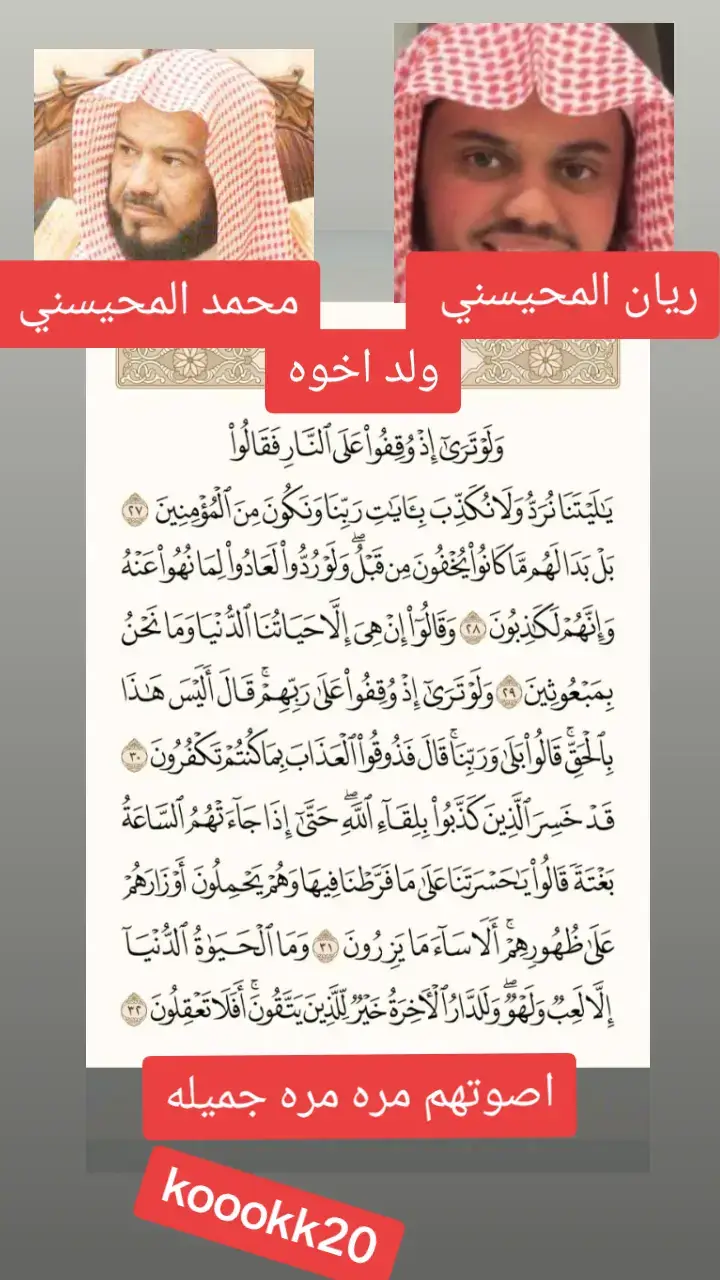 محمد المحيسني
ريان المحيسني
ولد اخوه
وَلَوْ تَرَىٰٓ إِذْ وُقِفُوا۟ عَلَى ٱلنَّارِ فَقَالُوا۟
يَٰلَيْتَنَا نُرَدُّ وَلَا نُكَذِّبَ بِـَٔايَٰتِ رَبِّنَا وَنَكُونَ مِنَ ٱلْمُؤْمِنِينَ ٢٧
بَلْ بَدَا لَهُم مَّا كَانُوا۟ يُخْفُونَ مِن قَبْلُ ۖ وَلَوْ رُدُّوا۟ لَعَادُوا۟ لِمَا نُهُوا۟ عَنْهُ
وَإِنَّهُمْ لَكَٰذِبُونَ ٢٨ وَقَالُوٓا۟ إِنْ هِىَ إِلَّا حَيَاتُنَا ٱلدُّنْيَا وَمَا نَحْنُ
بِمَبْعُوثِينَ ٢٩ وَلَوْ تَرَىٰٓ إِذْ وُقِفُوا۟ عَلَىٰ رَبِّهِمْ ۚ قَالَ أَلَيْسَ هَٰذَا
بِٱلْحَقِّ ۚ قَالُوا۟ بَلَىٰ وَرَبِّنَا ۚ قَالَ فَذُوقُوا۟ ٱلْعَذَابَ بِمَا كُنتُمْ تَكْفُرُونَ ٣٠
قَدْ خَسِرَ ٱلَّذِينَ كَذَّبُوا۟ بِلِقَآءِ ٱللَّهِ ۖ حَتَّىٰٓ إِذَا جَآءَتْهُمُ ٱلسَّاعَةُ
بَغْتَةً قَالُوا۟ يَٰحَسْرَتَنَا عَلَىٰ مَا فَرَّطْنَا فِيهَا وَهُمْ يَحْمِلُونَ أَوْزَارَهُمْ
عَلَىٰ ظُهُورِهِمْ ۚ أَلَا سَآءَ مَا يَزِرُونَ ٣١ وَمَا ٱلْحَيَوٰةُ ٱلدُّنْيَآ
إِلَّا لَعِبٌ وَلَهْوٌ ۖ وَلَلدَّارُ ٱلْـَٔاخِرَةُ خَيْرٌ لِّلَّذِينَ يَتَّقُونَ ۚ أَفَلَا تَعْقِلُونَ ٣٢
اصوتهم مره مره جميله
koookk20